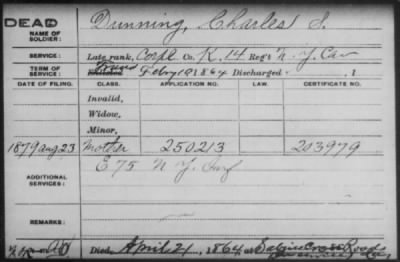 DEAD
NAME OF SOLDIER: Dunning, Charles S.
SERVICE: Late rank, Corpl Co. K, 14 Reg't N. Y. Cav
TERM OF SERVICE: Enlisted Feby 19 1864 Discharged , 1
DATE OF FILING. CLASS. APPLICATION NO. LAW. CERTIFICATE NO.
Invalid,
Widow,
Minor,
1879 Aug 23 Mother 250213 203979
ADDITIONAL SERVICES: E 75 N Y Inf
REMARKS:
Died April 21, 1864 at Sabine Cross Roads